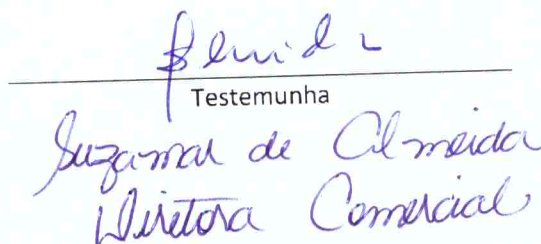 Testemunha
Suzamar de Almeida
Diretora Comercial